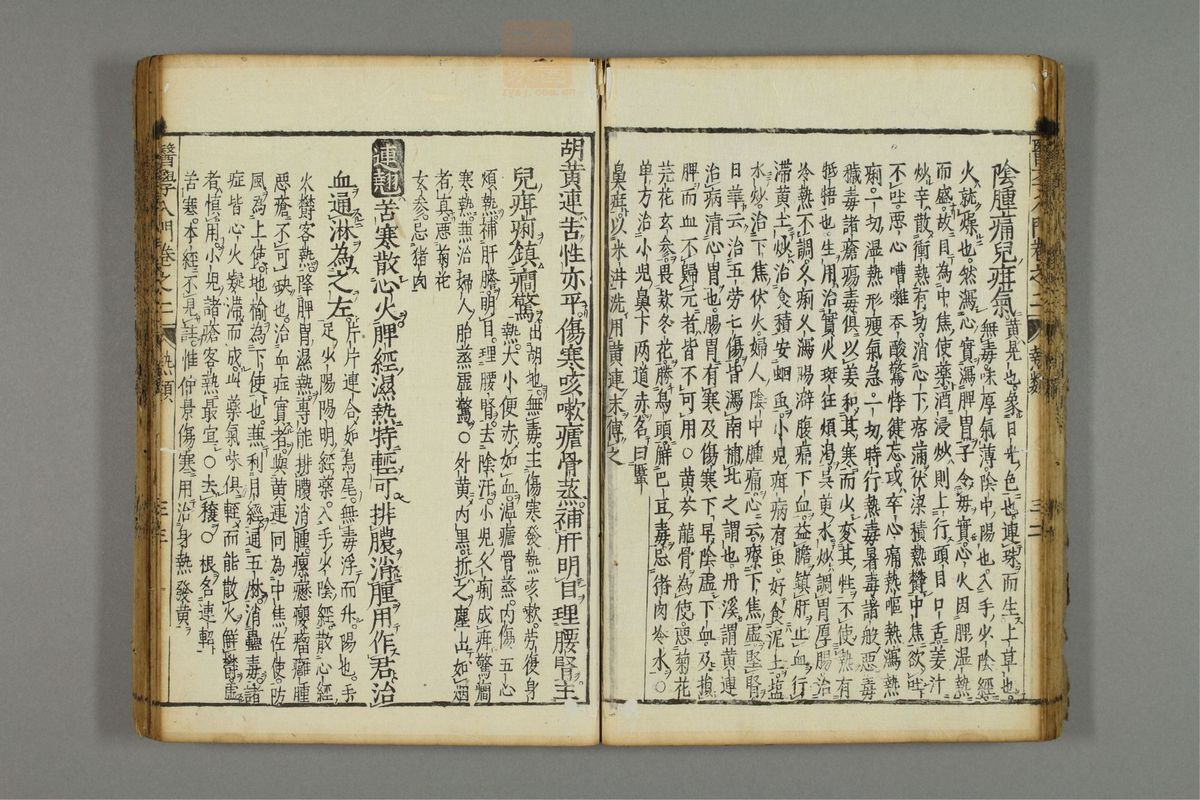 陰腫痛兒疳氣
黃見也象日光色也連珠而生上草也
無毒味厚氣薄陰中陽也入手少陰經
火就燥也然瀉心實瀉脾胃子令母實心火因脾濕熱
而盛故目為中焦使藥酒浸炒則上行頭目口舌姜汁
炒辛散衝熱有功消心下痞滿伏梁積熱鬱中焦欲吐
不吐惡心嘈雜吞酸驚悸健忘或卒心痛熱嘔熱瀉熱
痢一切濕熱形瘦氣急一切時行熱毒暑毒諸般惡毒
穢毒諸瘡瘍毒俱以姜和其寒而火変其性不使熱有
牴牾也生用治實火斑狂煩渴吳黃水炒調胃厚腸治
冷熱不調久痢又瀉腸澼腹痛下血益膽鎮肝止血行
滯黃土炒治食積安蛔虫小兒疳病有虫好食泥土塩
水炒治下焦伏火婦人陰中腫痛心云療下焦虛堅腎
日華云治五劳七傷皆瀉南補北之謂也丹溪謂黃連
治病清心胃也腸胃有寒及傷寒下早陰虛下血及損
脾而血不歸元者皆不可用○黃芩龍骨為使惡菊花
芫花玄參畏欵冬花勝烏頭解巴豆毒忌猪肉冷水○
单方治小兒鼻下两道赤名曰䘌
鼻疳以米泔洗用黃連末傅之
醫學入門卷之二
熱類
胡黃連苦性亦平傷寒咳嗽瘧骨蒸補肝明目理腰腎主
兒疳痢鎮癎驚
出胡地無毒主傷寒發熱咳嗽劳復身
熱大小便赤如血溫瘧骨蒸内傷五心
煩熱補肝膽明目理腰腎去陰汗小兒久痢成疳驚癎
寒熱兼治婦人胎蒸虛驚○外黃内黒折之塵出如烟
者真惡菊花
玄參忌猪肉
連翹苦寒散心火脾經濕熱特輕可排膿消腫用作君治
血通淋為之左
片片連合如鳥尾無毒浮而升陽也手
足少陽陽明經藥入手少陰經散心經
火欝客熱降脾胃濕熱專能排膿消腫瘰癧癭瘤癰腫
惡瘡不可缺也治血症實者與黃連同為中焦佐使防
風為上使地榆為下使也兼利月經通五淋消蠱毒諸
症皆心火凝滯而成此藥氣味俱輕而能散火觧欝虛
者慎用小兒諸瘡客熱最宜○去穣○根名連軺
苦寒本經不見註惟仲景傷寒用治身熱發黃